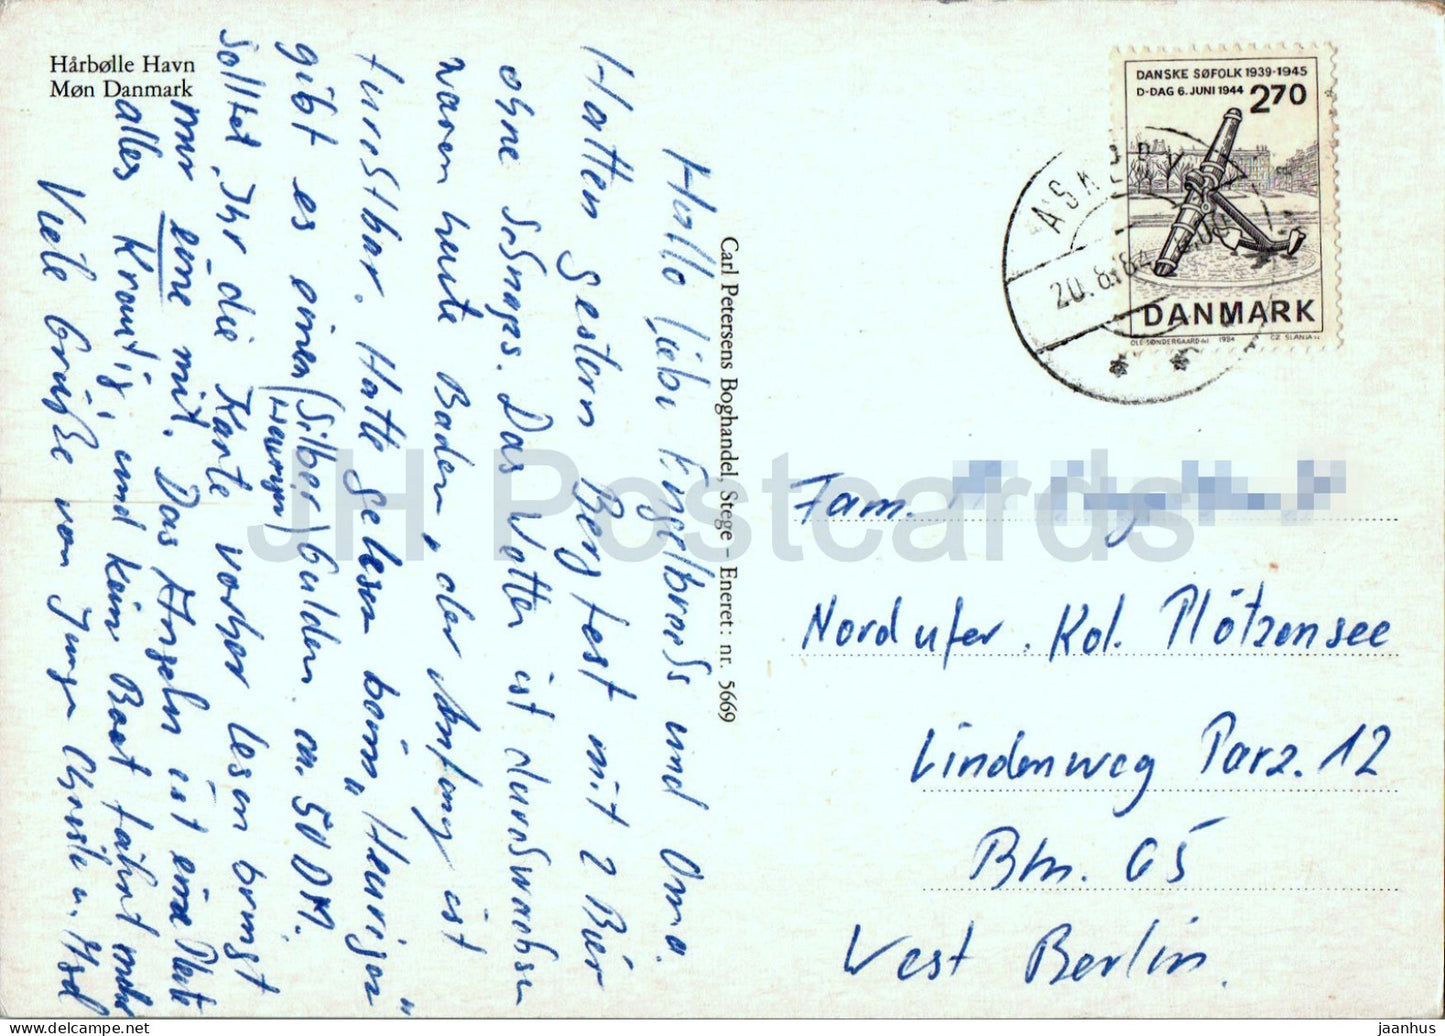 Hårbølle Havn
Møn Danmark
Hallo liebe Engelbrechts und Oma.
Hatten gestern Bergfest mit 2 Bier
ohne Schnaps. Das Wetter ist durchwachsen
waren heute Baden, der Anfang ist
furchtbar. Hatte gelesen beim „Heurigen"
gibt es einen (Silber) Gulden ca. 50 DM.
Heurigen
Solltet Ihr die Karte vorher lesen bringt
mir eine mit. Das Angeln ist eine Pleite
alles Krautig, und kein Boot fährt mehr
Viele Grüße von
Carl Petersens Boghandel, Stege – Eneret: nr. 5669
DANSKE SØFOLK 1939-1945
D-DAG 6. JUNI 1944
270
DANMARK
OLE SØNDERGAARD del 1984 CZ. SLANIA sc
20.8.84
Fam.
Nordufer. Kol. Plötzensee
Lindenweg Parz. 12
Bln. 65
West Berlin.
JH Postcards
https://www.hippostcard.com
jaanhus